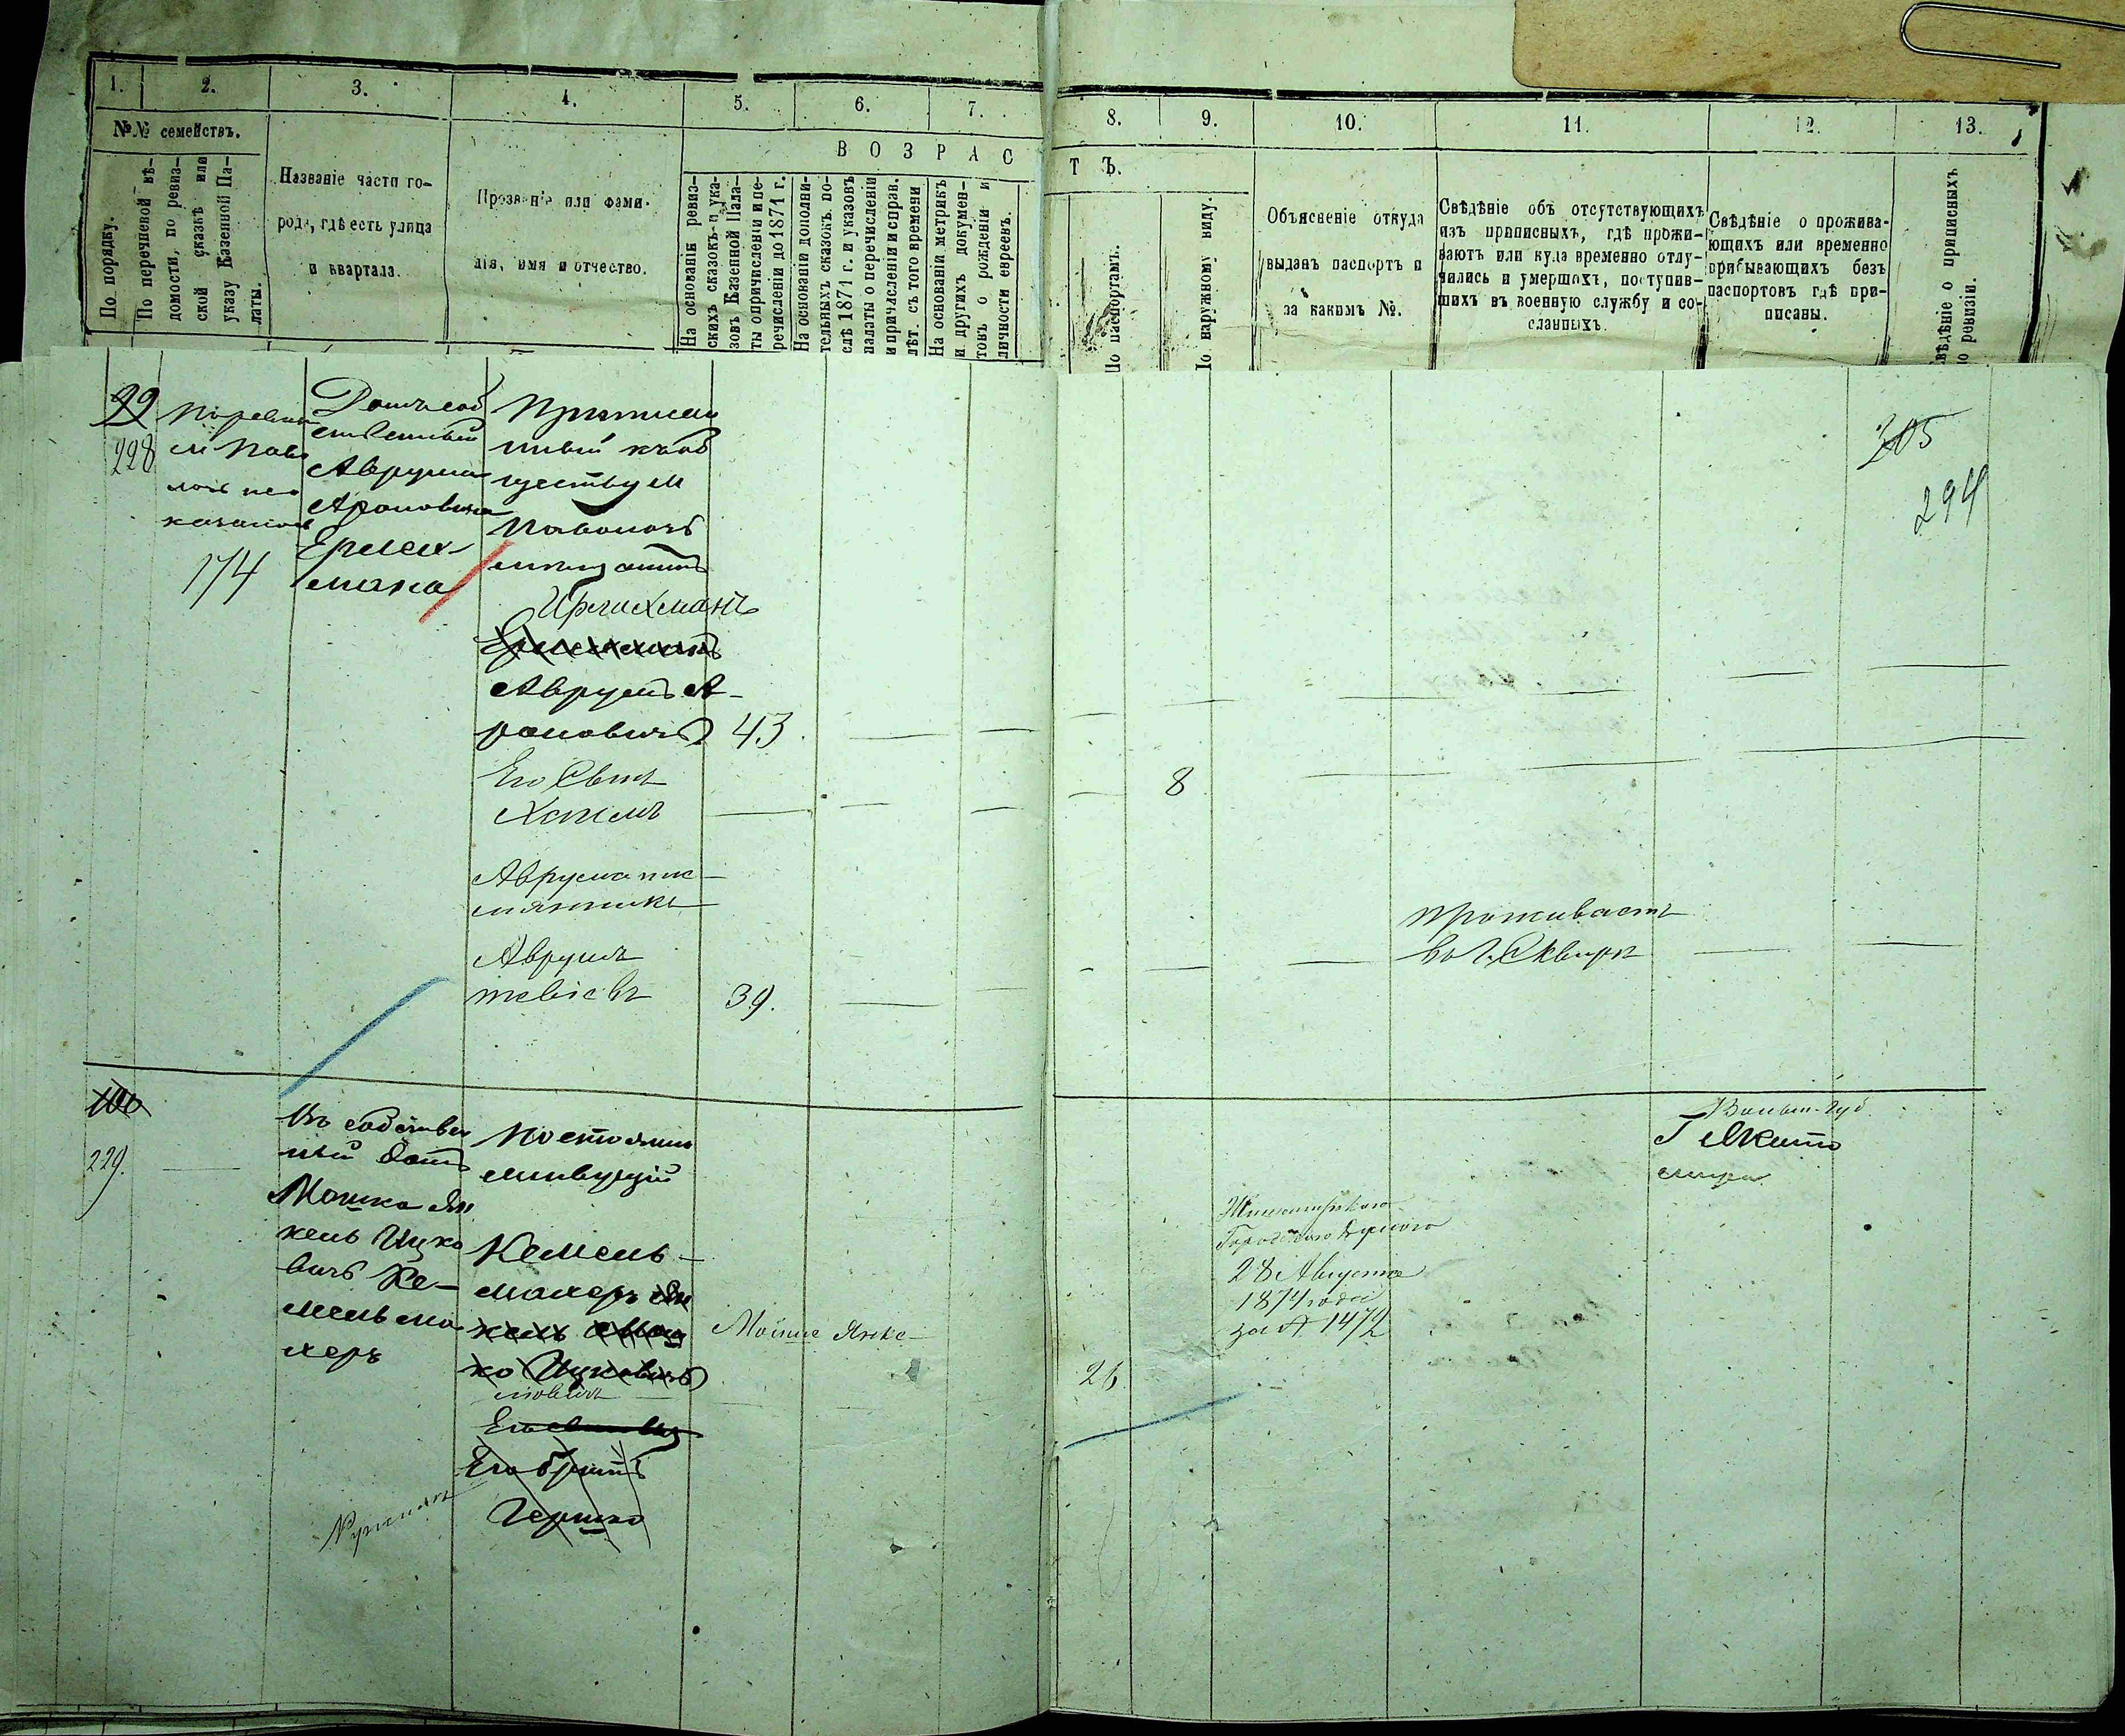 1.
2.
3.
4.
5.
6.
7.
8.
9.
10.
11.
12.
13.
№№ семействъ.
По порядку.
По перечневой вѣ-
домости, по ревиз-
ской сказкѣ или
указу Казенной Па-
латы.
Названіе части го-
рода, гдѣ есть улица
и квартала.
Прозваніе или фами-
лія, имя и отчество.
ВОЗРАС
ТЪ.
На основаніи ревиз-
скихъ сказокъ и ука-
зовъ Казенной Пала-
ты о причисленіи и пе-
речисленіи до 1871 г.
На основаніи дополни-
тельныхъ сказокъ по-
слѣ 1871 г. и указовъ
палаты о перечисленіи
и причисленіи и справ.
лѣт. съ того времени
На основаніи метрикъ
и другихъ докумен-
товъ о рожденіи и
личности евреевъ.
По паспортамъ.
По наружному виду.
Объясненіе откуда
выданъ паспортъ и
за какимъ №.
Свѣдѣніе объ отсутствующихъ
изъ приписныхъ, гдѣ прожи-
ваютъ или куда временно отлу-
чились и умершихъ, поступив-
шихъ въ военную службу и со-
сланныхъ.
Свѣдѣніе о прожива-
ющихъ или временно
прибывающихъ безъ
паспортовъ гдѣ при-
писаны.
Свѣдѣніе о приписныхъ
по ревизіи.
99
228
174
Домъ соб
ственный
Аврума
Ароновича
Ермех-
мана
Приписан
ный къ об
ществу м
Паволочь
мещанинъ
Ирмехманъ
Аврумъ А-
роновичъ 43
Его Сынъ
Хаимъ
8
Аврума пле-
мянникъ
Аврумъ
Тевіевъ 39.
проживаетъ
въ г. Сквирѣ
305
294
100
229.
Въ собствен
ный домъ
Мошка Ян
кель Ицко
вичъ Ке-
мельма
херъ
Постоянно
живущій
Кемель-
махеръ Ян
кель Мош
ко Ицковичъ
Мойше Янке-
левичъ
Его братъ
Гершко
26
Житомирского
28 Августа
1874 года
за № 1472
Волын. губ.
Г. Житомира